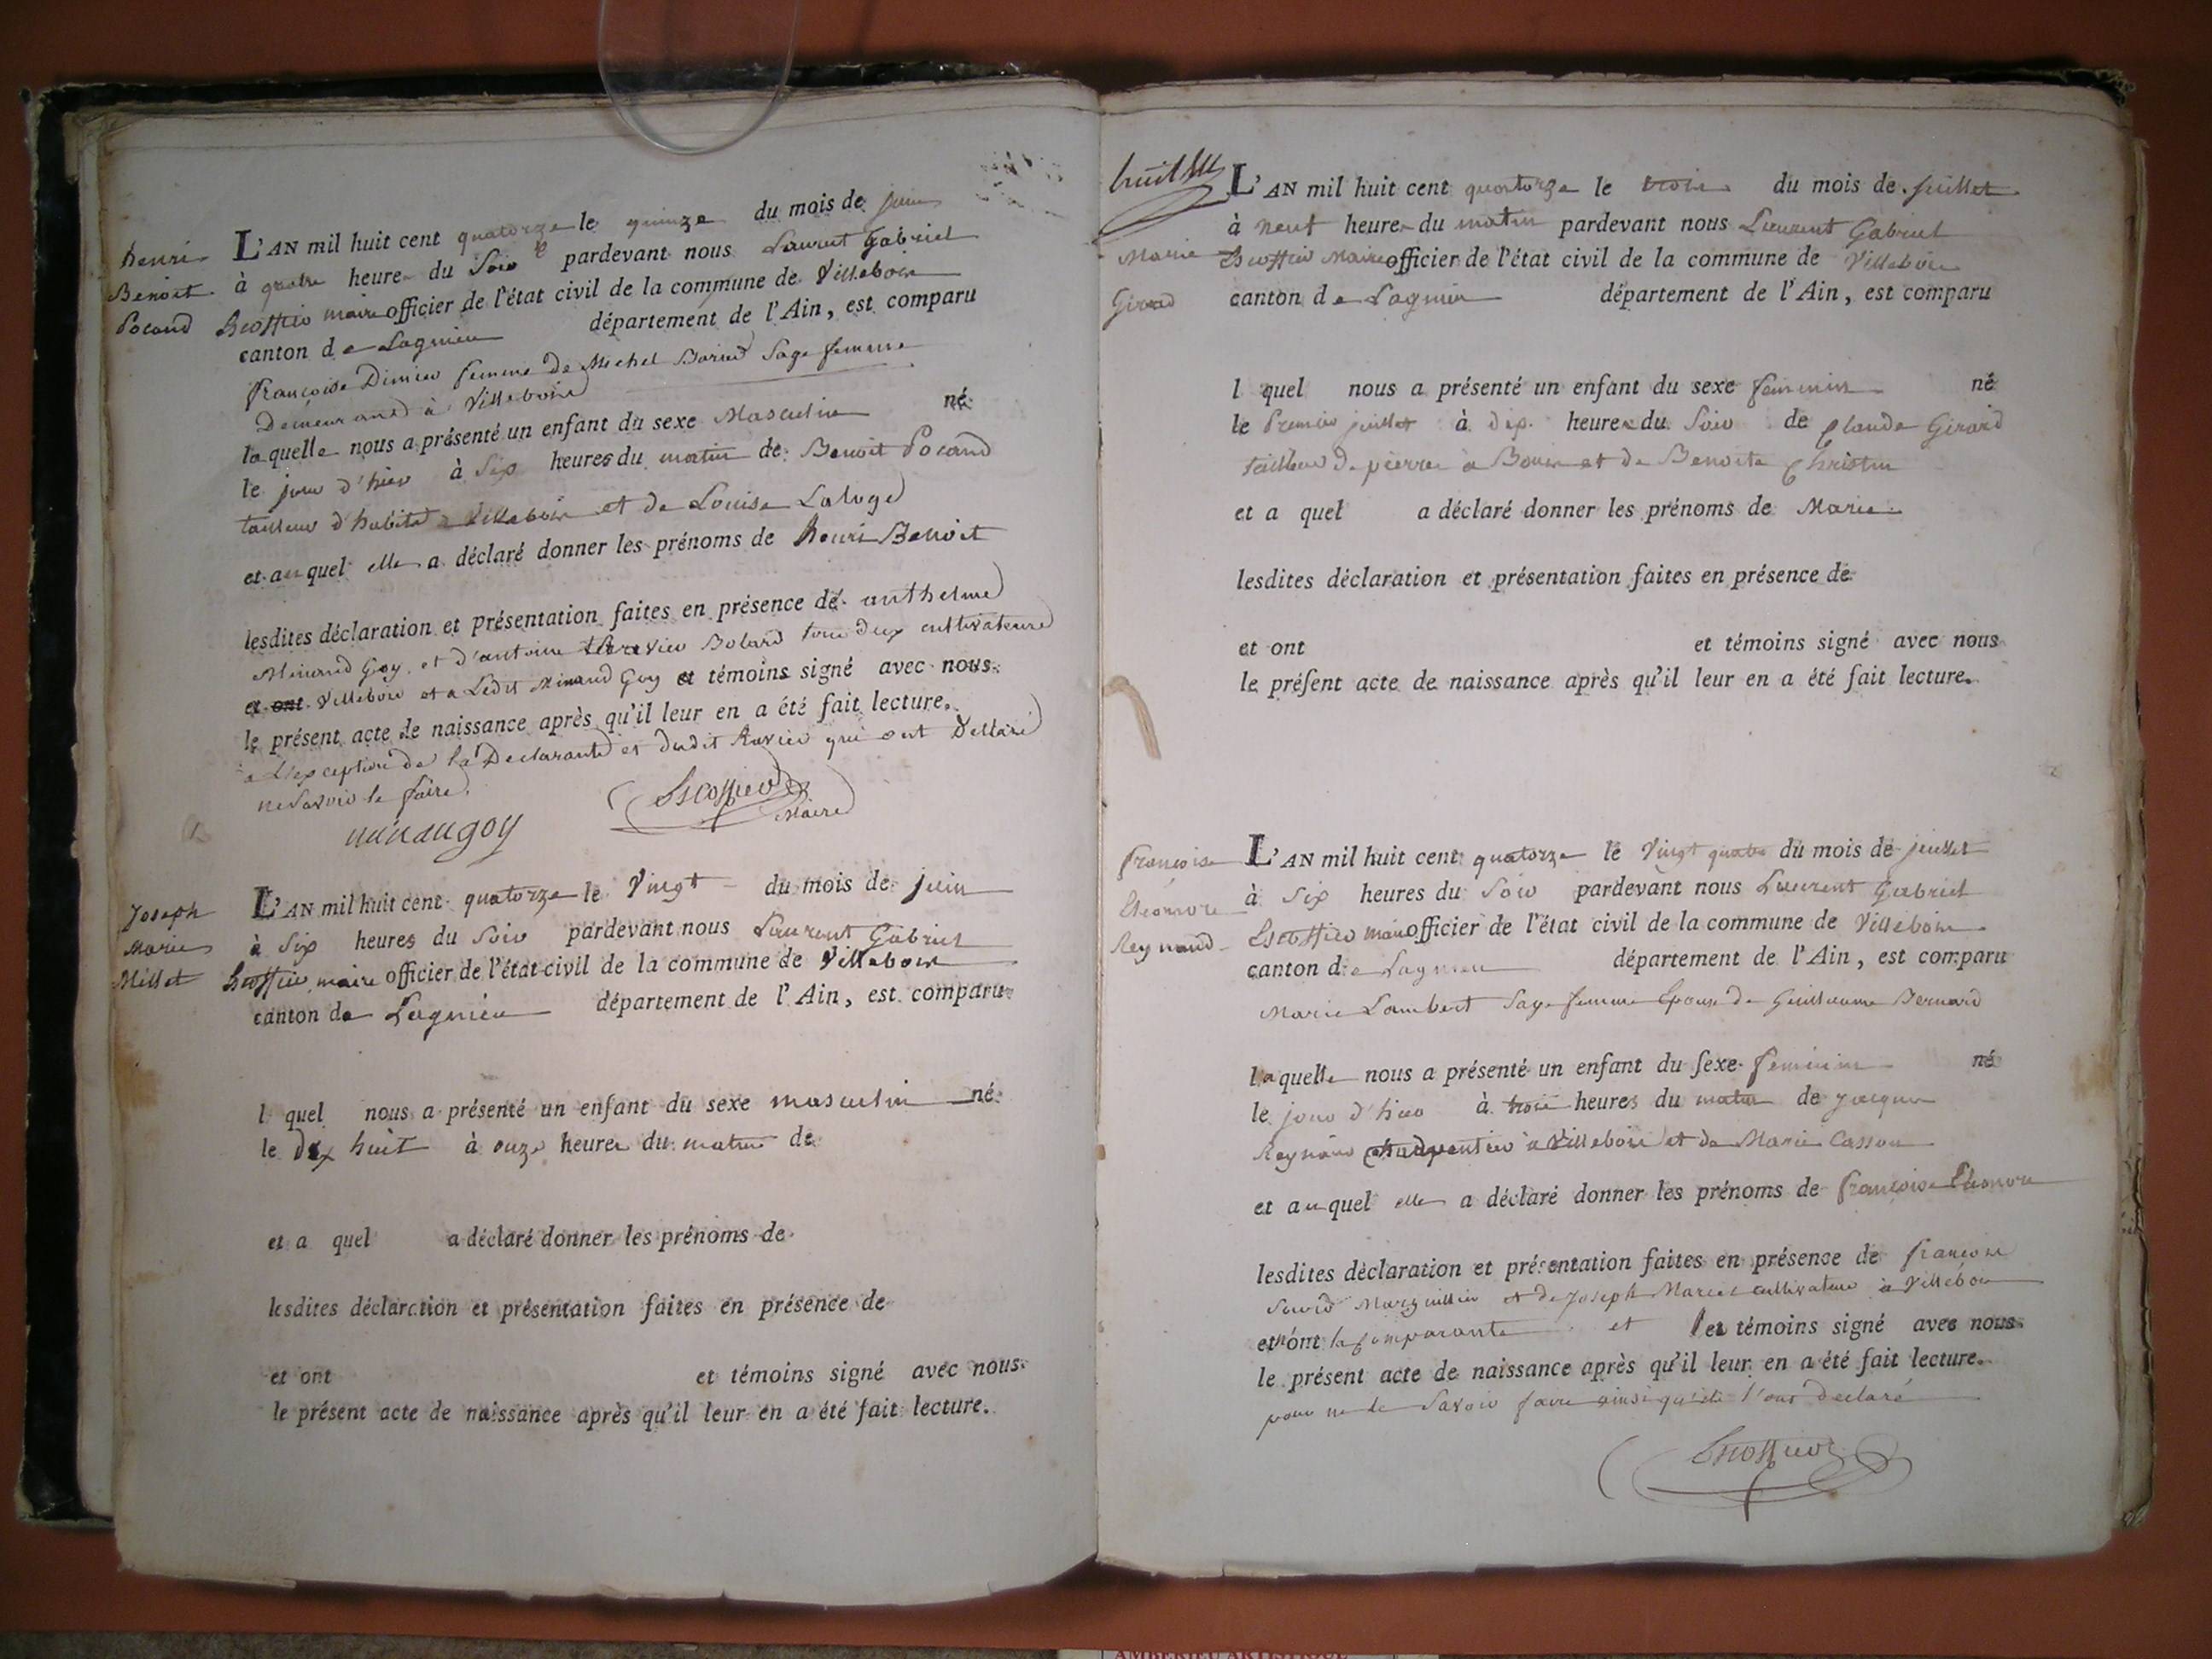 henri
Benoit
Pocand
L'AN mil huit cent quatorze le quinze du mois de juin
à quatre heure du Soir pardevant nous Laurent Gabriel
Escoffier maire officier de l'état civil de la commune de Villebois
canton de Lagnieu département de l'Ain, est comparu
françoise Dimier femme de Michel Sage femme
Demeurant à Villebois
laquelle nous a présenté un enfant du sexe Masculin né
le jour d'hier à Six heures du matin de Benoit Pocand
tailleur d'habits à Villebois et de Louise Laloge
et auquel elle a déclaré donner les prénoms de henri Benoit
lesdites déclaration et présentation faites en présence de anthelme
Minand Goy et d'antoine Ravier Bolard tous deux cultivateurs
et ont Villebois et a Ledit Minand Goy et témoins signé avec nous
le présent acte de naissance après qu'il leur en a été fait lecture.
a L'exception de la Declarante et dudit Ravier qui ont Déclaré
ne Savoir le faire.
minaugoy
Escoffier
Maire
Joseph
Marie
Millet
L'AN mil huit cent quatorze le Vingt du mois de juin
à Six heures du Soir pardevant nous Laurent Gabriel
Escoffier maire officier de l'état civil de la commune de Villebois
canton de Lagnieu département de l'Ain, est comparu
l quel nous a présenté un enfant du sexe masculin né
le dix huit à onze heures du matin de
et a quel a déclaré donner les prénoms de
lesdites déclaration et présentation faites en présence de
et ont et témoins signé avec nous
le présent acte de naissance après qu'il leur en a été fait lecture.
Marie
Girard
L'AN mil huit cent quatorze le trois du mois de juillet
à neuf heure du matin pardevant nous Laurent Gabriel
Escoffier Maire officier de l'état civil de la commune de Villebois
canton de Lagnieu département de l'Ain, est comparu
l quel nous a présenté un enfant du sexe feminin né
le Premier juillet à dix heures du Soir de Claude Girard
tailleur de pierre à Bouis et de Benoite Christin
et a quel a déclaré donner les prénoms de Marie
lesdites déclaration et présentation faites en présence de
et ont et témoins signé avec nous
le présent acte de naissance après qu'il leur en a été fait lecture.
françoise
Eleonore
Reynaud
L'AN mil huit cent quatorze le Vingt quatre du mois de juillet
à Six heures du Soir pardevant nous Laurent Gabriel
Escoffier maire officier de l'état civil de la commune de Villebois
canton de Lagnieu département de l'Ain, est comparu
Marie Lambert Sage femme Epouse de Guillaume Bernard
laquelle nous a présenté un enfant du sexe feminin né
le jour d'hier à trois heures du matin de jacques
Reynaud charpentier à Villebois et de Marie Cassou
et auquel elle a déclaré donner les prénoms de françoise Eleonore
lesdites déclaration et présentation faites en présence de françois
Marguillier et de Joseph cultivateur à Villebois
et n'ont la comparante et les témoins signé avec nous
le présent acte de naissance après qu'il leur en a été fait lecture.
pour ne le Savoir faire ainsi qu'ils l'ont declaré
Escoffier